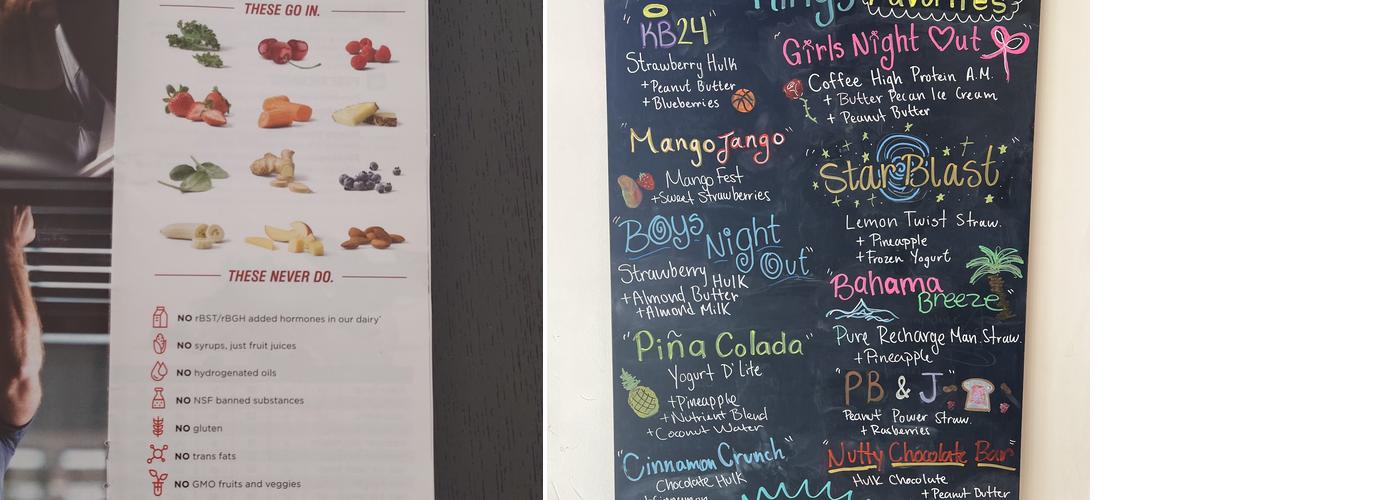 THESE GO IN.
THESE NEVER DO.
NO rBST/rBGH added hormones in our dairy*
NO syrups, just fruit juices
NO hydrogenated oils
NO NSF banned substances
NO gluten
NO trans fats
NO GMO fruits and veggies
Favorites
"KB24"
Strawberry Hulk
+Peanut Butter
+Blueberries
"Mango Jango"
Mango Fest
+Sweet Strawberries
"Boys Night Out"
Strawberry Hulk
+Almond Butter
+Almond Milk
"Piña Colada"
Yogurt D'lite
+Pineapple
+Nutrient Blend
+Coconut Water
"Cinnamon Crunch"
Chocolate Hulk
+Cinnamon
"Girls Night Out"
Coffee High Protein A.M.
+ Butter Pecan Ice Cream
+ Peanut Butter
"Star Blast"
Lemon Twist Straw.
+ Pineapple
+Frozen Yogurt
"Bahama Breeze"
Pure Recharge Man.Straw.
+Pineapple
"PB & J"
Peanut Power Straw.
+ Rasberries
"Nutty Chocolate Bar"
Hulk Chocolate
+Peanut Butter